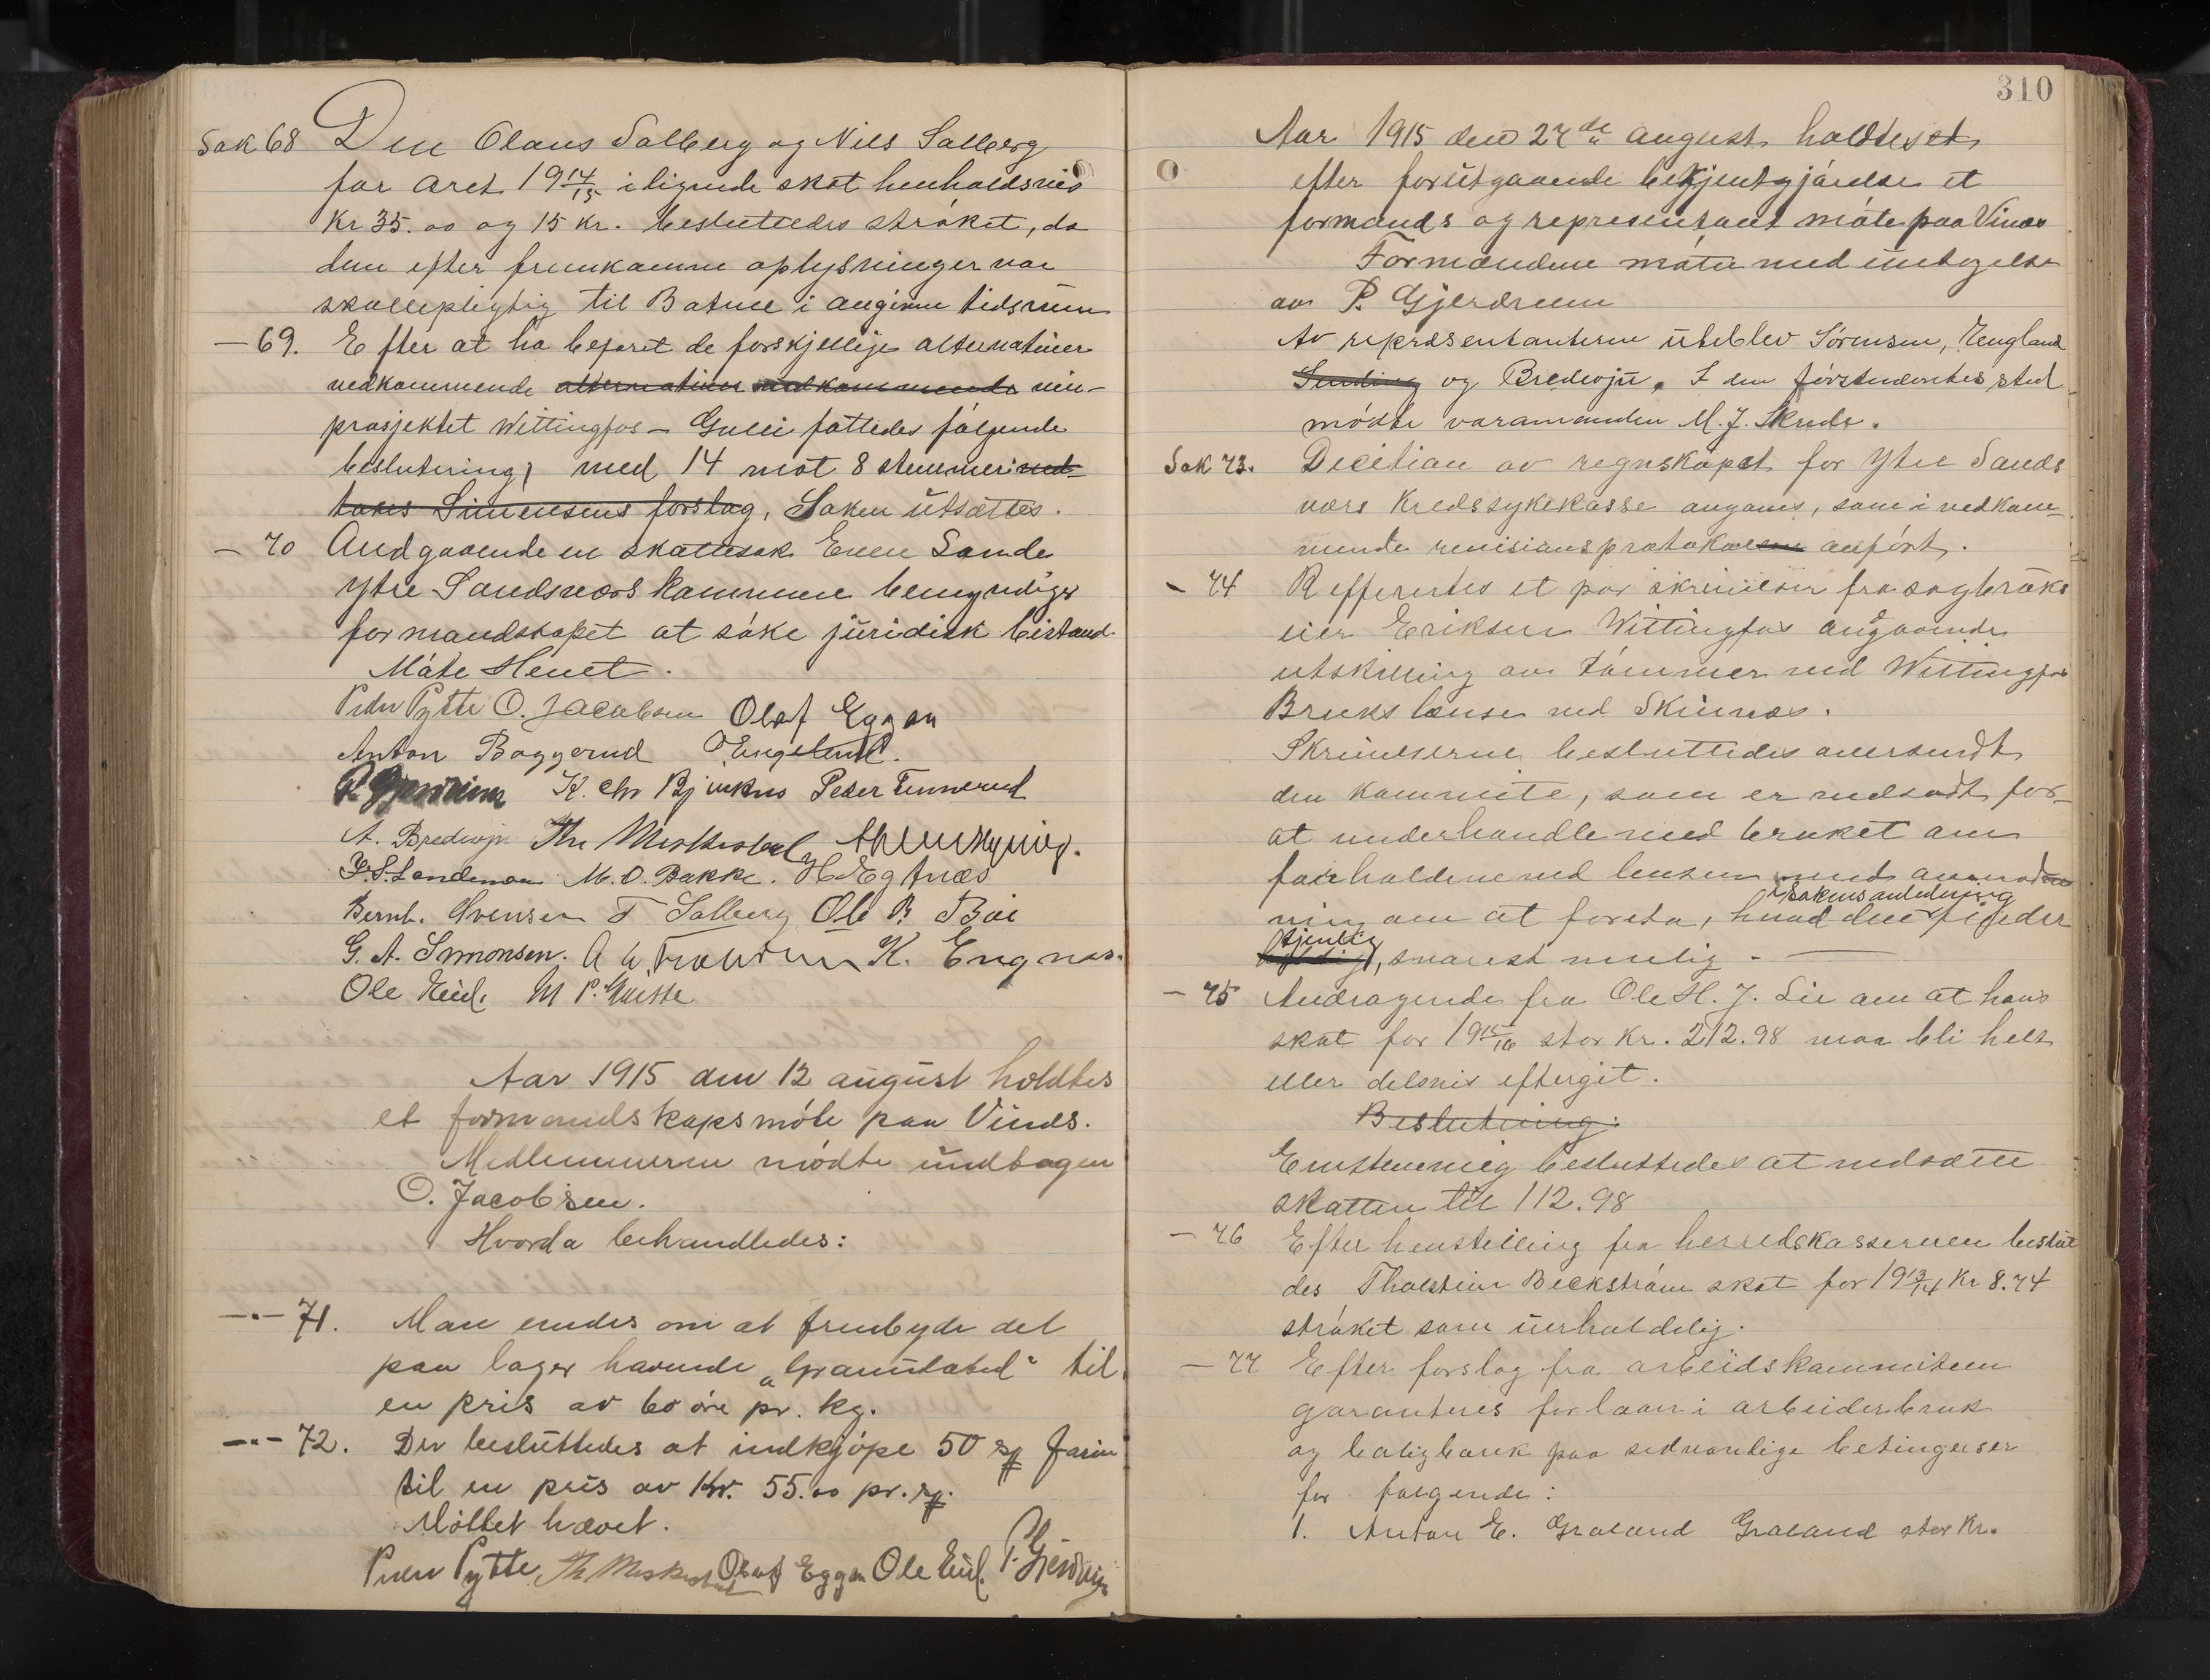 Sak 68 Den Olaus Solberg og Nils Solberg
for aret 19 14/15 ilignede skat henholdsvis
Kr 35.00 og 15 kr. besluttedes strøket, da
den efter fremkomne oplysninger var
skattepligtig til Botne i angivne tidsrum
— 69. Efter at ha befaret de forskjellige alternativer
vedkommende alternativer vedkommende vin-
prosjektet Wittingfos – Gulli fattedes følgende
beslutning; med 14 mot 8 stemmer: ved-
toves Simensens forslag, Saken utsættes.
— 70 Andgaaende en skattesak Even Sande
Ytre Sandsvær kommune bemyndiges
formandskapet at søke juridisk bistand.
Møte Hevet.
Peder Pytte O. Jacobsen Olaf Eggan
Anton Baggerud O Engelund.
P. Gjerdrum K. Chr Bjerknes Peder Tennerud
A. Bredvoju Th Meskestad
M. O. Bakke. H Egtnæs
Bernh. Svensen T Solberg Ole B Bøe
G. A. Simonsen. K. Engnæs.
Ole Eid. M P.
Aar 1915 den 12 august holdtes
et formandskapsmøte paa Vinæs.
Medlemmerne mødte undtagen
O. Jacobsen.
Hvorda behandledes:
—"— 71. Man enedes om at frembyde det
paa lager havende „Granulated“ til
en pris av 60 øre pr. kg.
—"— 72. Der besluttedes at indkjøpe 50 sk farin
til en pris av Kr. 55.00 pr. sk.
Møttet hævet.
Peder Pytte Th Meskestad Olaf Eggan Ole Eid. P. Gjerdrum
310
Aar 1915 den 27de august holdtes et
efter forutgaaende bekjentgjørelse et
formands og representant møte paa Vinæs
Formændene møtte med undtagelse
av P. Gjerdrum
Av repræsentanterne uteblev Sørensen, Engeland
Sending og Bredvoju. I den førstnevntes sted
mødte varamanden M. J. Skrude.
Sak 73. Decition av regnskapet for Ytre Sands
værs Kredssykekasse avgaves, som i vedkom-
mende revisionsprotokollen anført.
— 74 Refferertes et par skrivelser fra sagbruks
eier Eriksen Wittingfos angaaende
utskilling av tømmer ved Wittingfos
Bruks lænse ved Skinnæs.
Skrivelserne besluttedes oversendt
den kommite, som er nedsadt for
at underhandle med bruket om
forholdene ved lensen med anmod
ning om at foreta, hvad den i sakens anledning finder
tjenlig, snarest mulig. —
— 75 Andragende fra Ole H. J. Lie om at hans
skat for 19 15/16 stor Kr. 212.98 maa bli helt
eller delsvis eftergit.
Beslutning:
Enstemmig besluttedes at nedsætte
skatten til 112.98
— 76 Efter henstilling fra herredskassereren beslut
des Tholstein Beckstrøm skat for 19 13/14 Kr 8.74
strøket som uerholdelig.
— 77 Efter forslag fra arbeidskommiteen
garanteres for laan i arbeiderbruk
og boligbank paa sedvanlige betingelser
for følgende:
1. Anton E. Graland Graland stor Kr.